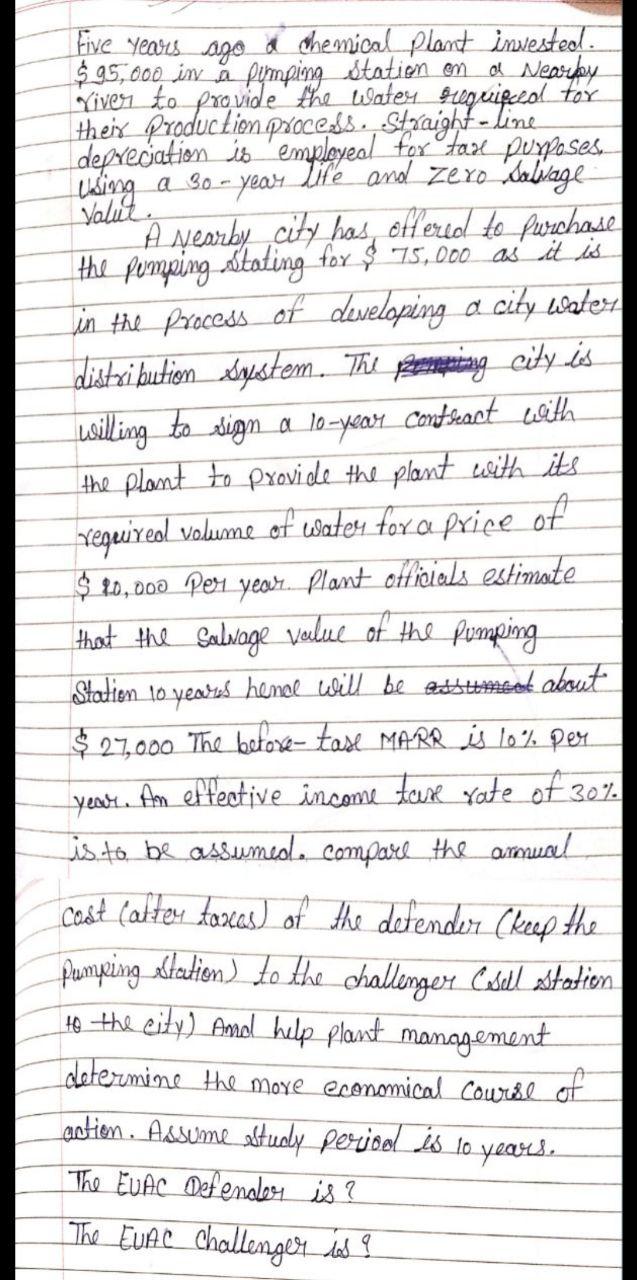 Five years ago a chemical plant invested.
$95,000 in a pumping station on a Nearby
river to provide the water required for
their production process. Straight-line
depreciation is employed for tax purposes,
using a 30-year life and zero salvage
value.
A Nearby city has offered to purchase
the pumping stating for $ 75,000 as it is
in the process of developing a city water
distribution system. The city is
willing to sign a 10-year contract with
the plant to provide the plant with its
required volume of water for a price of
$ 20,000 per year. Plant officials estimate
that the salvage value of the pumping
station 10 years hence will be about
$ 27,000 The before-tax MARR is 10% per
year. An effective income tax rate of 30%.
is to be assumed. compare the annual
cost (after taxes) of the defender (keep the
pumping station) to the challenger (sell station
to the city) And help plant management
determine the more economical course of
action. Assume study period is 10 years.
The EUAC Defender is?
The EUAC challenger is?